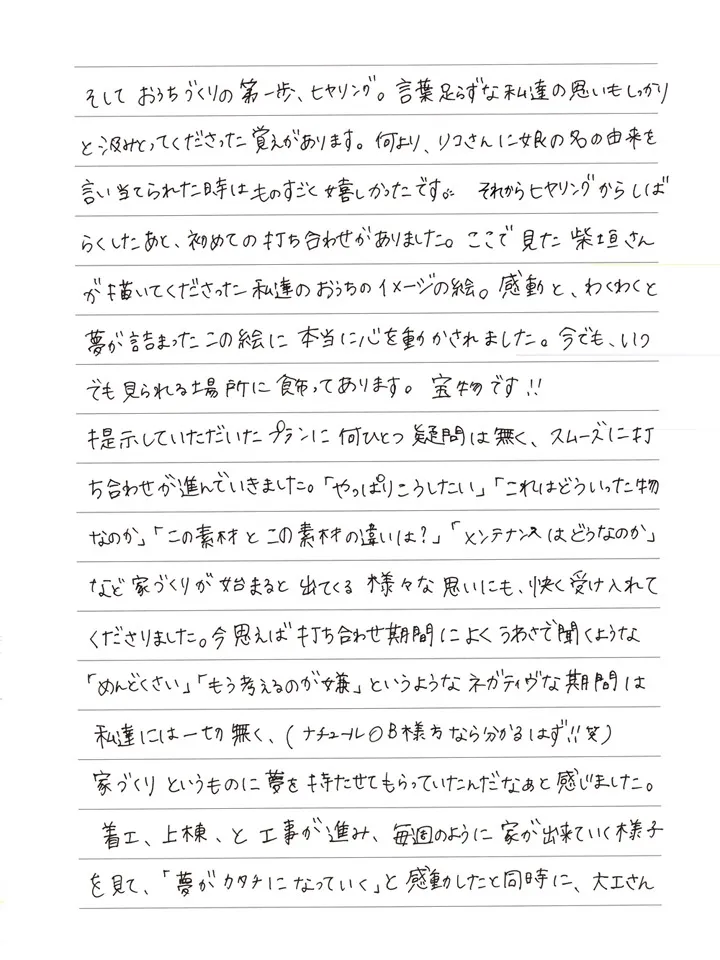 そして おうちづくりの第一歩、ヒヤリング。言葉足らずな私達の思いもしっかり
と汲みとってくださった覚えがあります。何より、リコさんに娘の名の由来を
言い当てられた時は ものすごく嬉しかったです。 それからヒヤリングからしば
らくしたあと、初めての打ち合わせがありました。ここで見た 柴垣さん
が描いてくださった私達のおうちのイメージの絵。感動と、わくわくと
夢が詰まったこの絵に 本当に心を動かされました。今でも、いつ
でも見られる場所に飾ってあります。 宝物です!!
提示していただいたプランに何ひとつ疑問は無く、スムーズに打
ち合わせが進んでいきました。「やっぱりこうしたい」「これはどういった物
なのか」「この素材とこの素材の違いは?」「メンテナンスはどうなのか」
など家づくりが始まると出てくる様々な思いにも、快く受け入れて
くださりました。今思えば打ち合わせ期間によくうわさで聞くような
「めんどくさい」「もう考えるのが嫌」というようなネガティヴな期間は
私達には一切無く、(ナチュールOB様方なら分かるはず!!笑)
家づくりというものに夢を持たせてもらっていたんだなぁと感じました。
着工、上棟、と工事が進み、毎週のように家が出来ていく様子
を見て、「夢がカタチになっていく」と感動したと同時に、大工さん